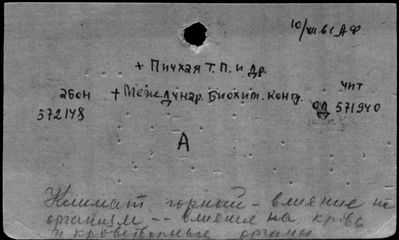 10/XII 61 АФ
+ Пичхая Т. П. и др.
абон + Междунар. Биохим. конг. чит
572148 ОД 571940
А
Климат горный - влияние на
организм -- влияние на кровь
и кроветворные органы